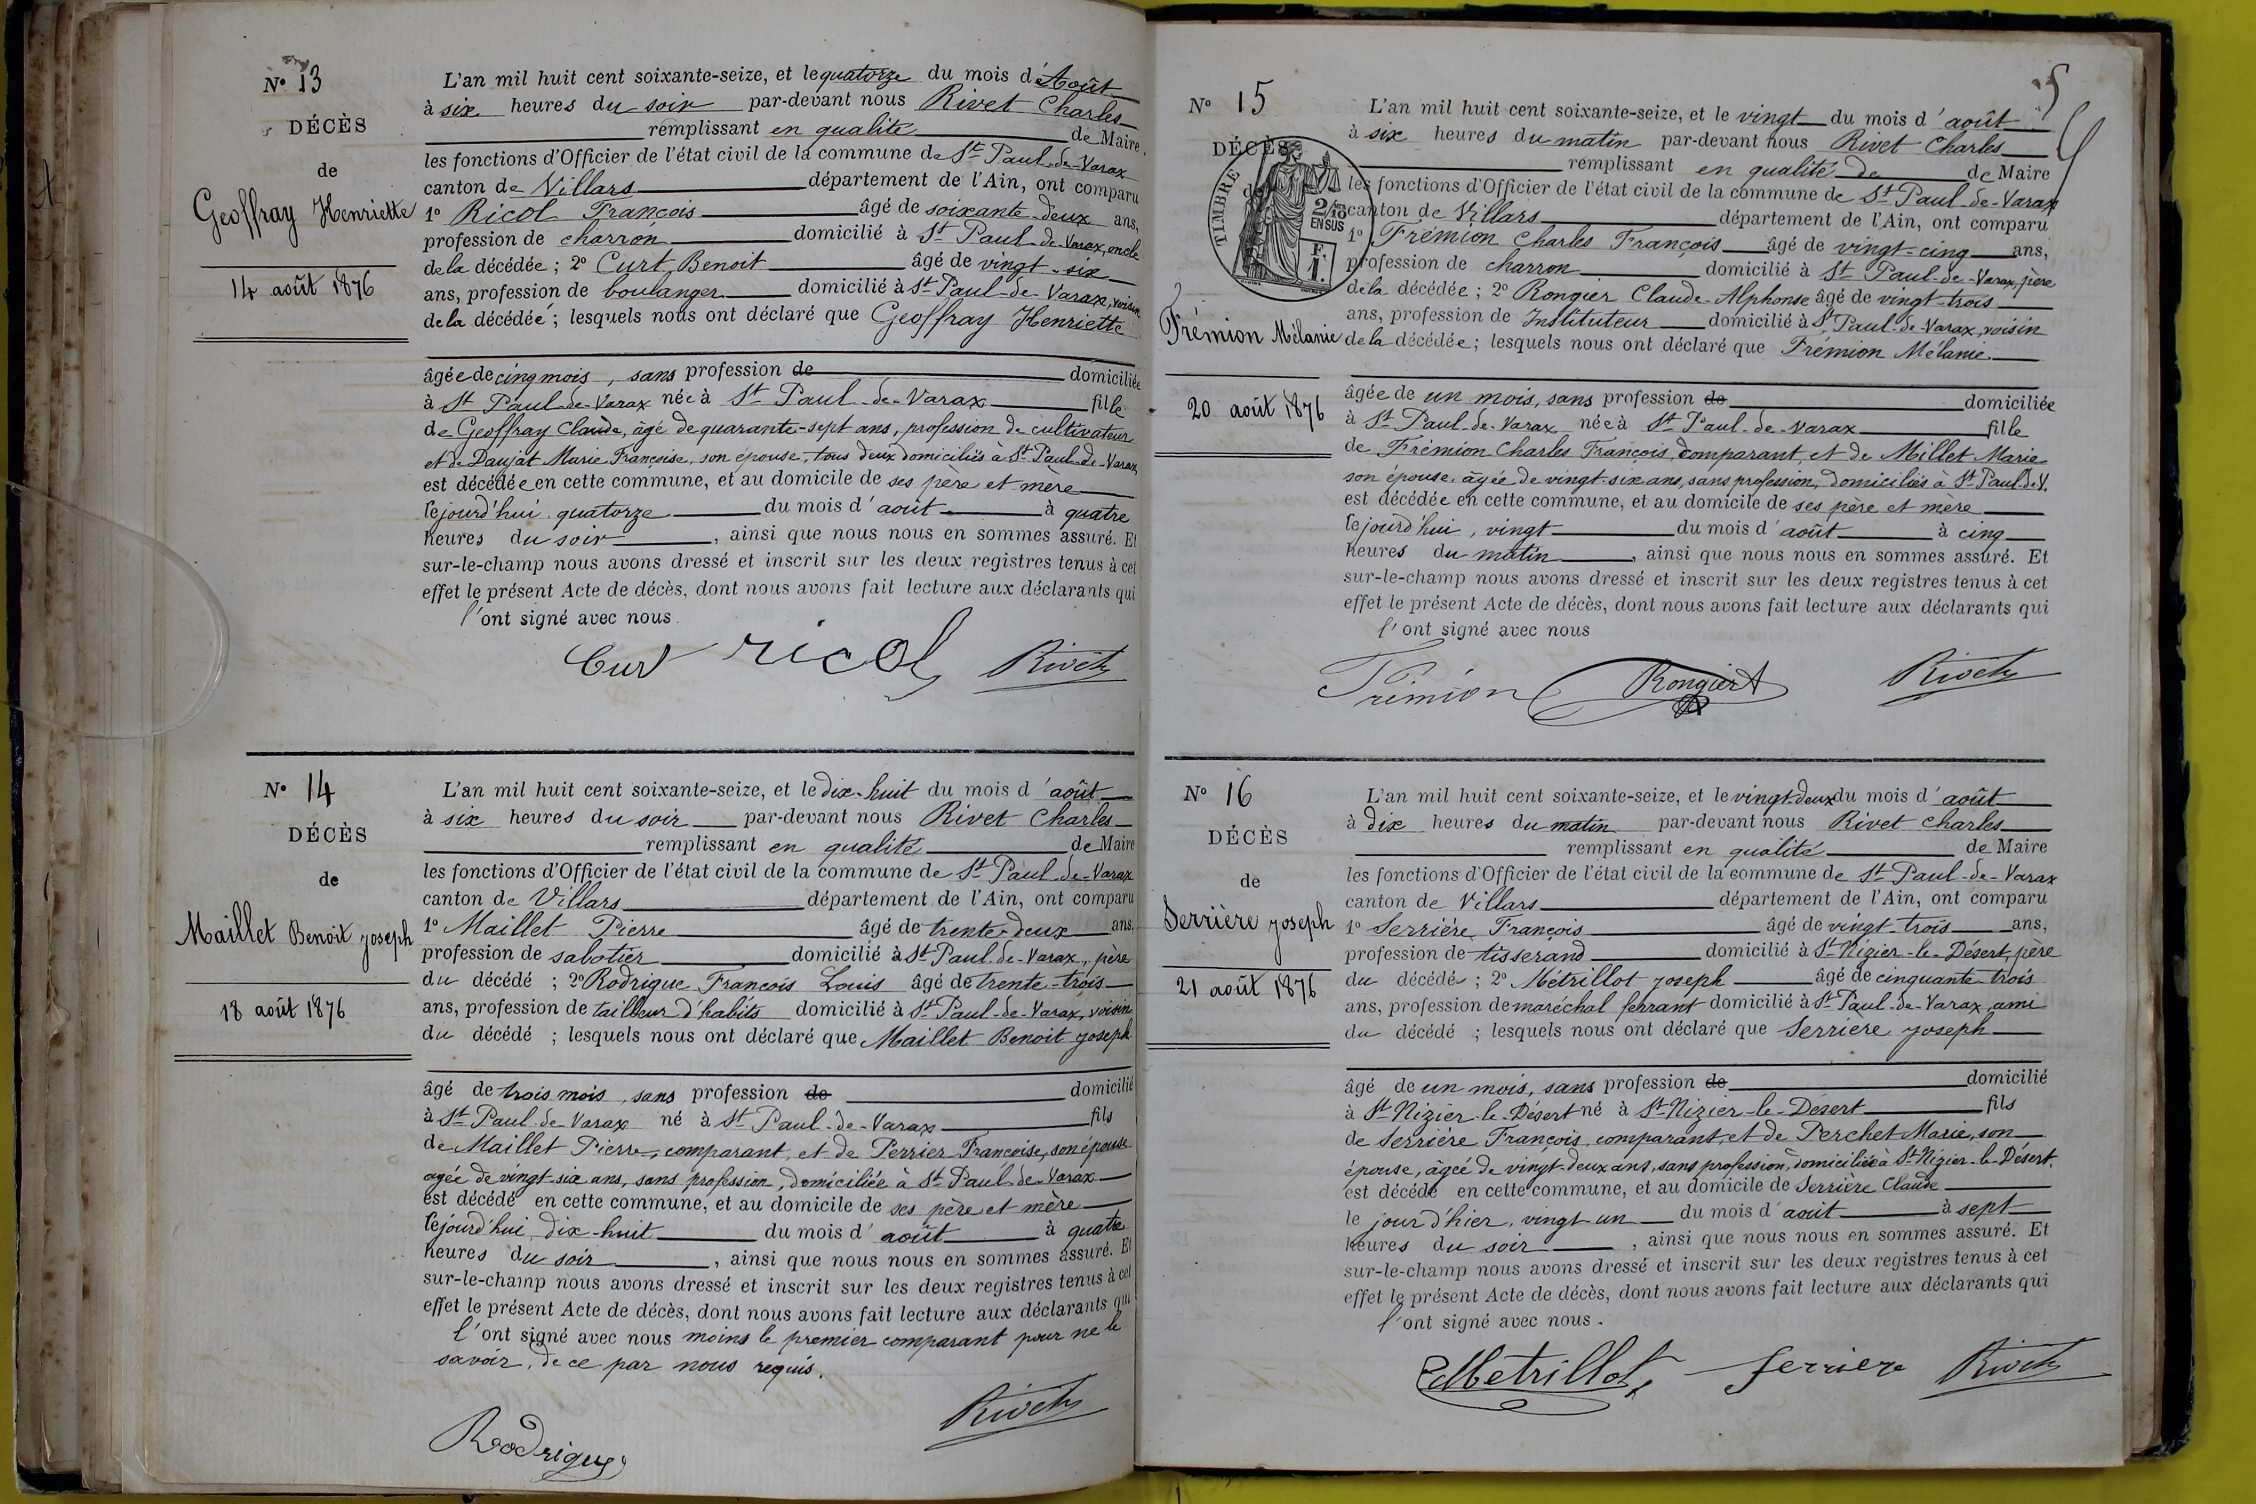 N° 13
DÉCÈS
de
Geoffray Henriette
14 août 1876
L'an mil huit cent soixante-seize, et le quatorze du mois d'Août
à six heures du soir par-devant nous Rivet Charles
remplissant en qualité de Maire
les fonctions d'Officier de l'état civil de la commune de St Paul-de-Varax
canton de Villars département de l'Ain, ont comparu
1° Ricol François âgé de soixante-deux ans,
profession de charron domicilié à St Paul-de-Varax, oncle
de la décédée ; 2° Curt Benoit âgé de vingt-six
ans, profession de boulanger domicilié à St Paul-de-Varax, voisin
de la décédée ; lesquels nous ont déclaré que Geoffray Henriette
âgée de cinq mois, sans profession de domiciliée
à St Paul-de-Varax née à St Paul-de-Varax fille
de Geoffray Claude, âgé de quarante-sept ans, profession de cultivateur
et de Daujat Marie Françoise, son épouse, tous deux domiciliés à St Paul-de-Varax,
est décédée en cette commune, et au domicile de ses père et mère
le jourd'hui quatorze du mois d'août à quatre
heures du soir, ainsi que nous nous en sommes assuré. Et
sur-le-champ nous avons dressé et inscrit sur les deux registres tenus à cet
effet le présent Acte de décès, dont nous avons fait lecture aux déclarants qui
l'ont signé avec nous.
Curt ricol Rivet
N° 14
DÉCÈS
de
Maillet Benoit Joseph
18 août 1876
L'an mil huit cent soixante-seize, et le dix-huit du mois d'août
à six heures du soir par-devant nous Rivet Charles
remplissant en qualité de Maire
les fonctions d'Officier de l'état civil de la commune de St Paul-de-Varax
canton de Villars département de l'Ain, ont comparu
1° Maillet Pierre âgé de trente-deux ans
profession de sabotier domicilié à St Paul-de-Varax, père
du décédé ; 2° Rodrigue François Louis âgé de trente-trois
ans, profession de tailleur d'habits domicilié à St Paul-de-Varax, voisin
du décédé ; lesquels nous ont déclaré que Maillet Benoit Joseph
âgé de trois mois, sans profession de domicilié
à St Paul-de-Varax né à St Paul-de-Varax fils
de Maillet Pierre, comparant, et de Perrier Françoise, son épouse
agée de vingt-six ans, sans profession, domiciliée à St Paul-de-Varax
est décédé en cette commune, et au domicile de ses père et mère
le jourd'hui, dix-huit du mois d'août à quatre
heures du soir, ainsi que nous nous en sommes assuré. Et
sur-le-champ nous avons dressé et inscrit sur les deux registres tenus à cet
effet le présent Acte de décès, dont nous avons fait lecture aux déclarants qui
l'ont signé avec nous moins le premier comparant pour ne le
savoir, de ce par nous requis.
Rodrigue Rivet
N° 15
DÉCÈS
de
TIMBRE
2/10
EN SUS
F.
1.
Frémion Mélanie
20 août 1876
L'an mil huit cent soixante-seize, et le vingt du mois d'août
à six heures du matin par-devant nous Rivet Charles
remplissant en qualité de de Maire
les fonctions d'Officier de l'état civil de la commune de St Paul-de-Varax
canton de Villars département de l'Ain, ont comparu
1° Frémion Charles François âgé de vingt-cinq ans,
profession de charron domicilié à St Paul-de-Varax, père
de la décédée ; 2° Rongier Claude-Alphonse âgé de vingt-trois
ans, profession de Instituteur domicilié à St Paul-de-Varax, voisin
de la décédée ; lesquels nous ont déclaré que Frémion Mélanie
âgée de un mois, sans profession de domiciliée
à St Paul-de-Varax née à St Paul-de-Varax fille
de Frémion Charles François, comparant, et de Millet Marie
son épouse, âgée de vingt-six ans, sans profession, domiciliés à St Paul-de-V.
est décédée en cette commune, et au domicile de ses père et mère
le jourd'hui, vingt du mois d'août à cinq
heures du matin, ainsi que nous nous en sommes assuré. Et
sur-le-champ nous avons dressé et inscrit sur les deux registres tenus à cet
effet le présent Acte de décès, dont nous avons fait lecture aux déclarants qui
l'ont signé avec nous
Frémion Rongier Rivet
N° 16
DÉCÈS
de
Serrière Joseph
21 août 1876
L'an mil huit cent soixante-seize, et le vingt-deux du mois d'août
à dix heures du matin par-devant nous Rivet Charles
remplissant en qualité de Maire
les fonctions d'Officier de l'état civil de la commune de St Paul-de-Varax
canton de Villars département de l'Ain, ont comparu
1° Serrière François âgé de vingt-trois ans,
profession de tisserand domicilié à St Nizier-le-Désert, père
du décédé ; 2° Métrillot Joseph âgé de cinquante-trois
ans, profession de maréchal ferrant domicilié à St Paul-de-Varax, ami
du décédé ; lesquels nous ont déclaré que Serrière Joseph
âgé de un mois, sans profession de domicilié
à St Nizier-le-Désert né à St Nizier-le-Désert fils
de Serrière François, comparant, et de Perchet Marie, son
épouse, âgée de vingt-deux ans, sans profession, domiciliée à St Nizier-le-Désert.
est décédé en cette commune, et au domicile de Serrière Claude
le jour d'hier, vingt un du mois d'août à sept
heures du soir, ainsi que nous nous en sommes assuré. Et
sur-le-champ nous avons dressé et inscrit sur les deux registres tenus à cet
effet le présent Acte de décès, dont nous avons fait lecture aux déclarants qui
l'ont signé avec nous.
Métrillot Serriere Rivet